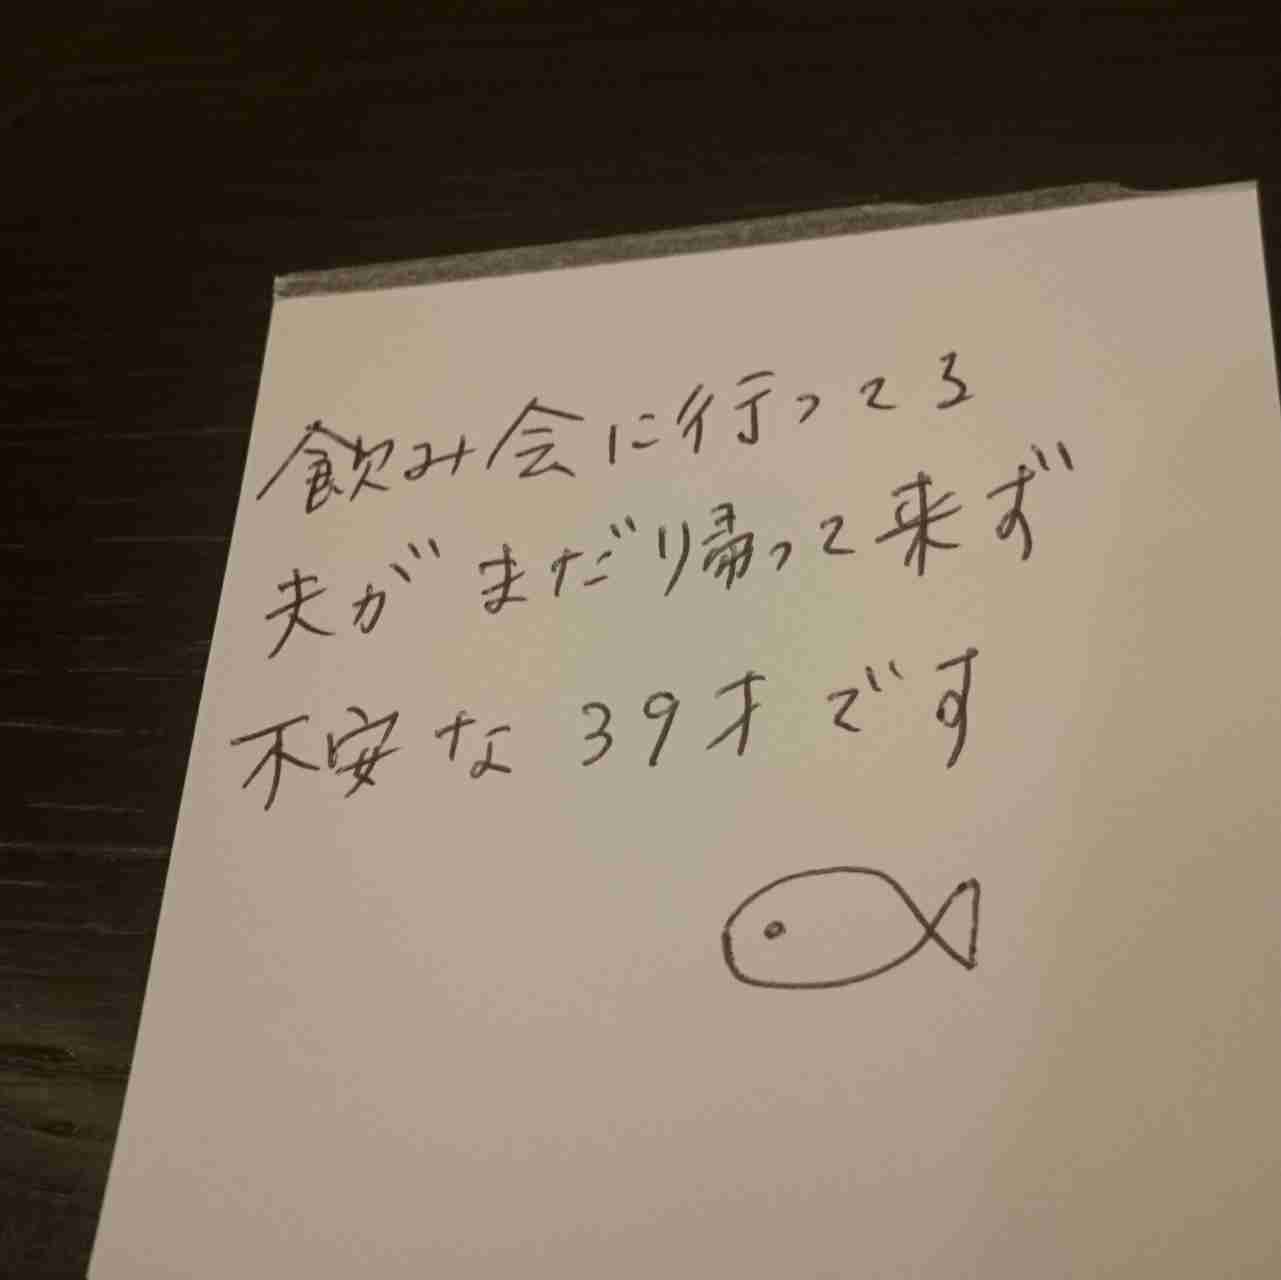 飲み会に行ってる
夫がまだ帰って来ず
不安な39才です